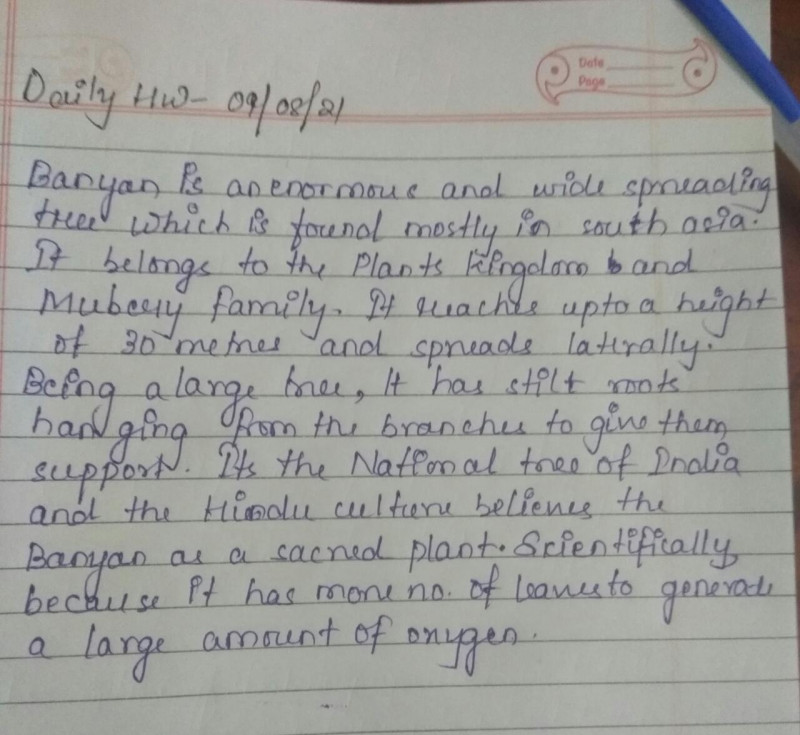 Date
Page
Daily HW- 09/08/21
Banyan is an enormous and wide spreading
tree which is found mostly in south asia.
It belongs to the Plants kingdom and
Mubeery family. It reaches upto a height
of 30 metres and spreads latirally.
Being a large tree, It has stilt roots
hanging from the branches to give them
support. Its the National tree of India
and the Hindu culture believes the
Banyan as a sacred plant. Scientifically
because it has more no. of leaves to generate
a large amount of oxygen.